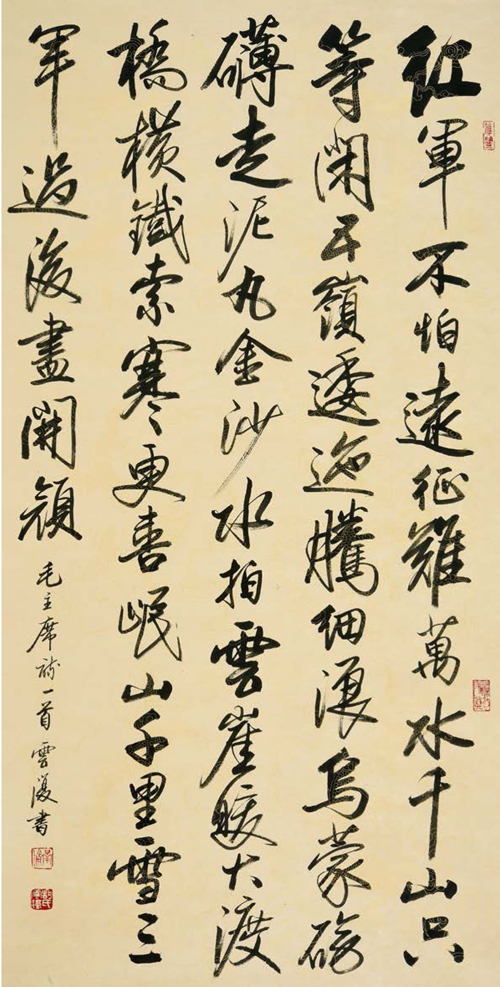 紅軍不怕遠征難萬水千山只
等閑五嶺逶迤騰細浪烏蒙磅
礴走泥丸金沙水拍雲崖暖大渡
橋橫鐵索寒更喜岷山千里雪三
軍過後盡開顏
毛主席詩一首雲書